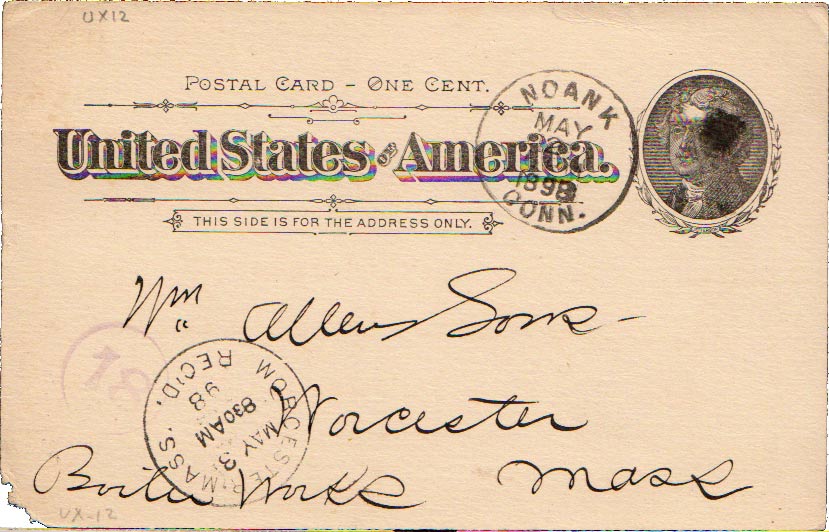 UX12
POSTAL CARD – ONE CENT.
United States OF America.
THIS SIDE IS FOR THE ADDRESS ONLY.
NOANK
MAY
1898
CONN.
Wm Allen Sons –
Worcester
Boiler Works Mass
WORCESTER, MASS. REC'D.
MAY 3
830AM
98
UX-12